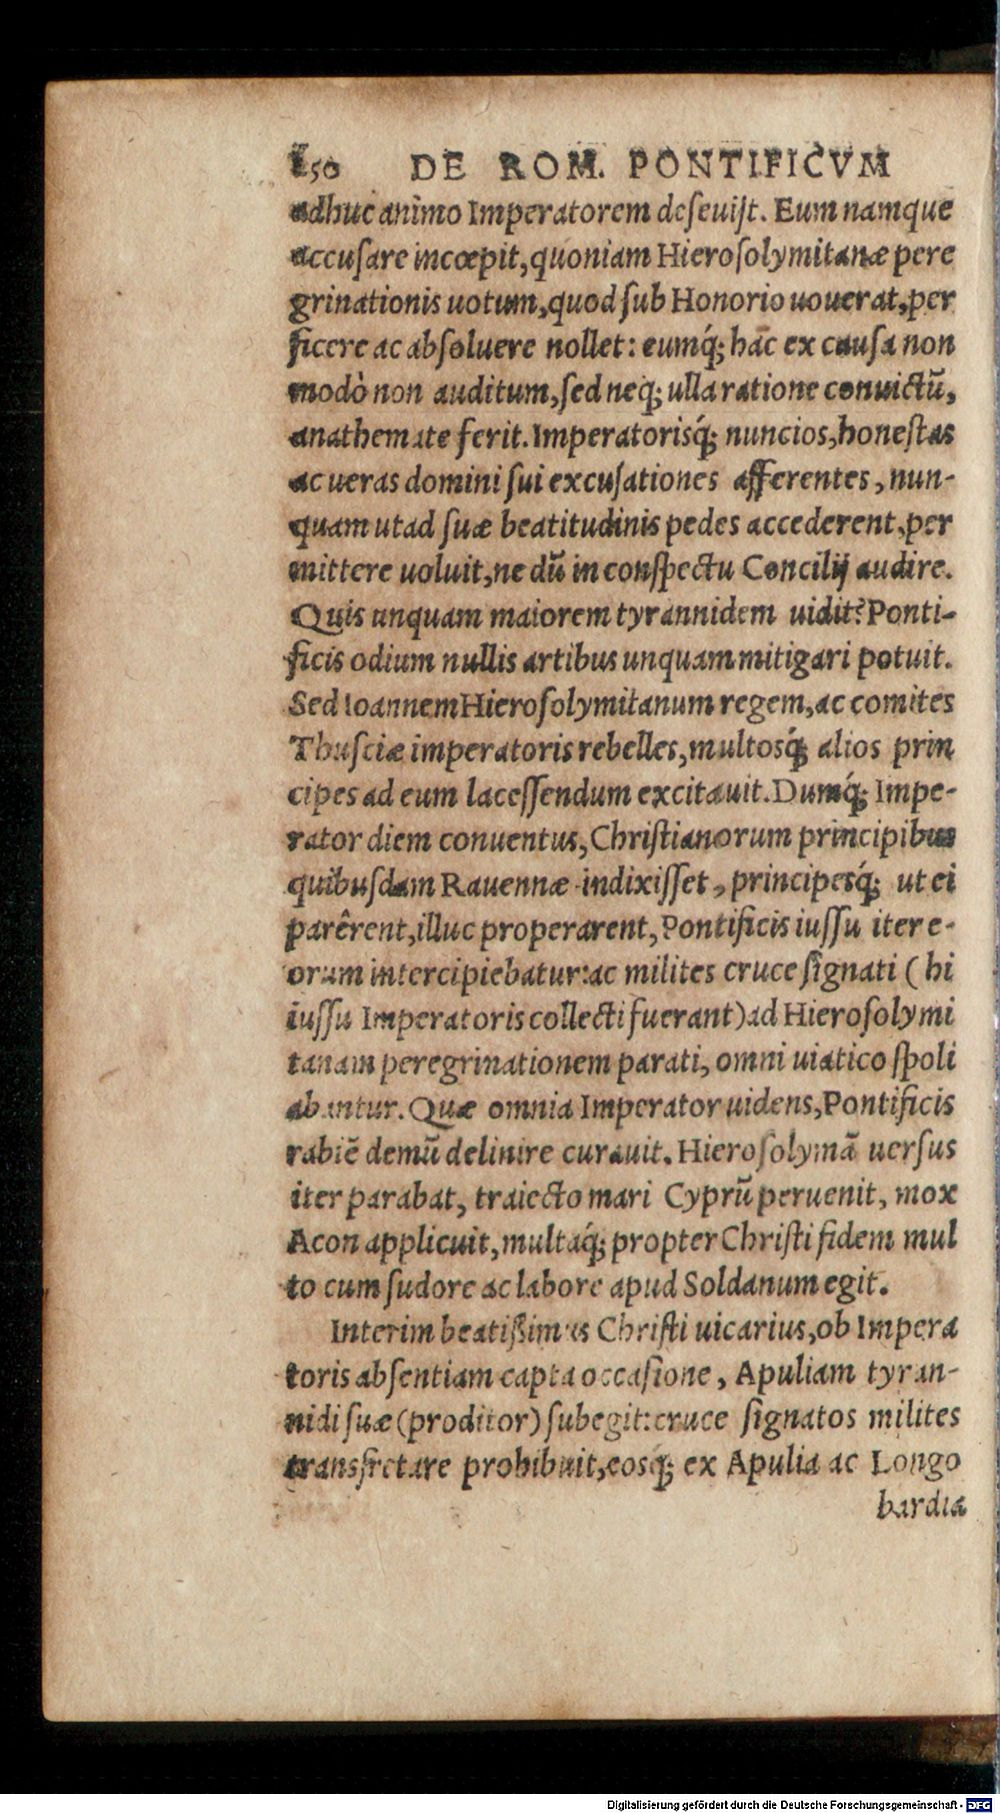 150 DE ROM. PONTIFICVM
adhuc animo Imperatorem deseuijt. Eum namque
accusare incœpit, quoniam Hierosolymitanæ pere
grinationis uotum, quod sub Honorio uouerat, per
ficere ac absoluere nollet: eumq́; hāc ex causa non
modò non auditum, sed neq; ulla ratione conuictū,
anathemate ferit. Imperatorisq́; nuncios, honestas
ac ueras domini sui excusationes afferentes, nun-
quam ut ad suæ beatitudinis pedes accederent, per
mittere uoluit, ne dū in conspectu Concilij audire.
Quis unquam maiorem tyrannidem uidit? Ponti-
ficis odium nullis artibus unquam mitigari potuit.
Sed Ioannem Hierosolymitanum regem, ac comites
Thusciæ imperatoris rebelles, multosq́; alios prin
cipes ad eum lacessendum excitauit. Dumq́; Impe-
rator diem conuentus, Christianorum principibus
quibusdam Rauennæ indixisset, principesq́; ut ei
parêrent, illuc properarent, Pontificis iussu iter e-
orum intercipiebatur: ac milites cruce signati ( hi
iussu Imperatoris collecti fuerant) ad Hierosolymi
tanam peregrinationem parati, omni uiatico spoli
abantur. Quæ omnia Imperator uidens, Pontificis
rabiē demū delinire curauit. Hierosolymā uersus
iter parabat, traiecto mari Cyprū peruenit, mox
Acon applicuit, multaq́; propter Christi fidem mul
to cum sudore ac labore apud Soldanum egit.
Interim beatißimus Christi uicarius, ob Impera
toris absentiam capta occasione, Apuliam tyran-
nidi suæ (proditor) subegit: cruce signatos milites
transfretare prohibuit, eosq́; ex Apulia ac Longo
bardia
Digitalisierung gefördert durch die Deutsche Forschungsgemeinschaft - DFG